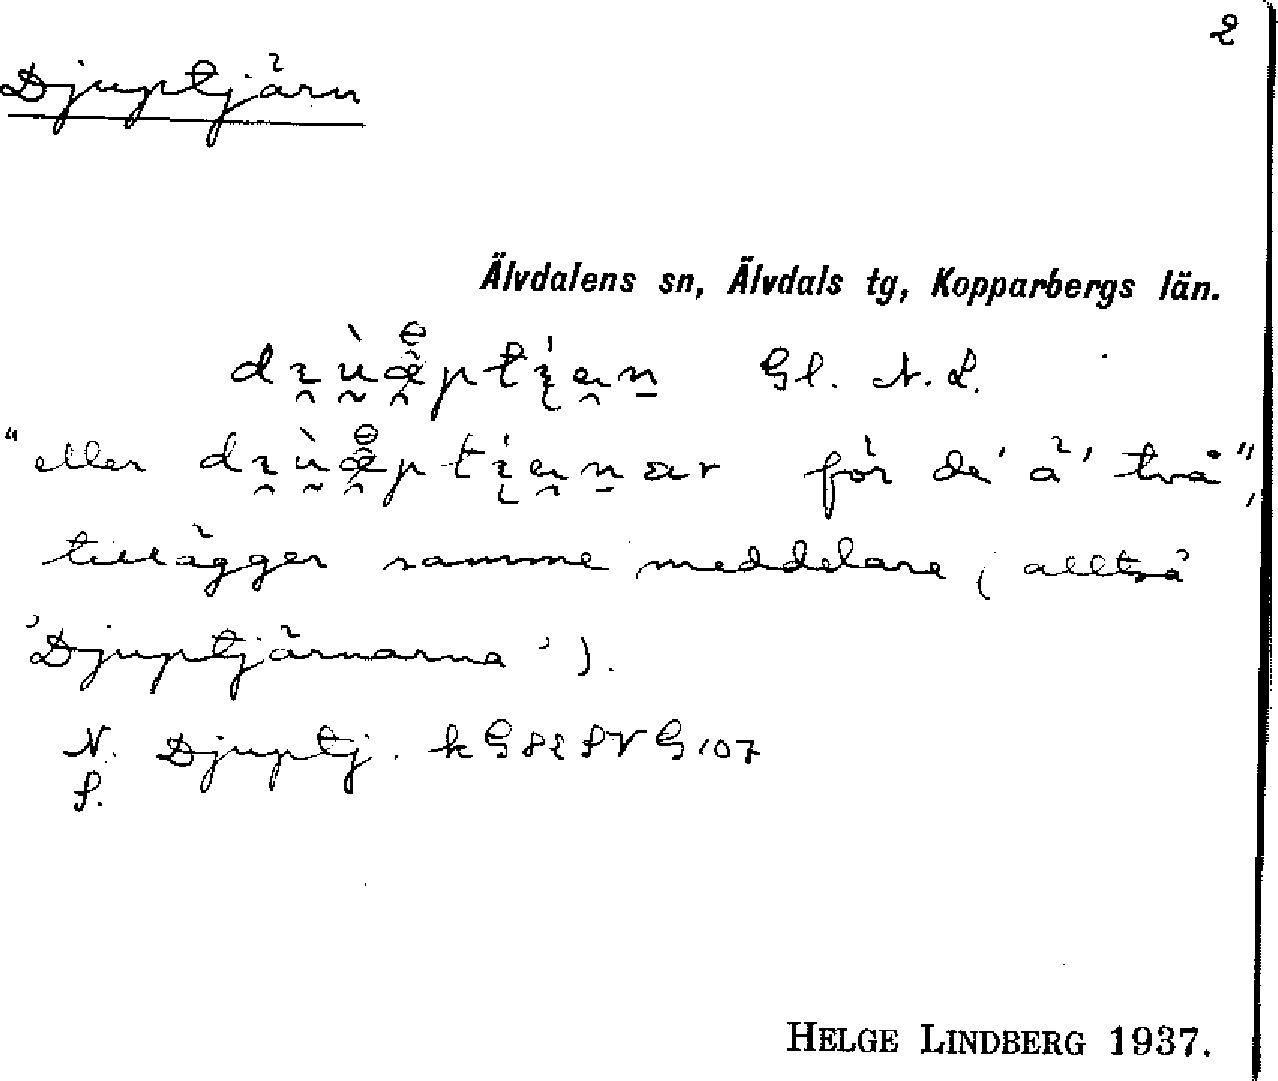 2
Djuptjärn
Älvdalens sn, Älvdals tg, Kopparbergs län.
Gl. N. L.
"eller för de' ä' två",
tillägger samme meddelare (alltså
'Djuptjärnarna').
N. Djuptj. k G82 f V G107
f.
HELGE LINDBERG 1937.